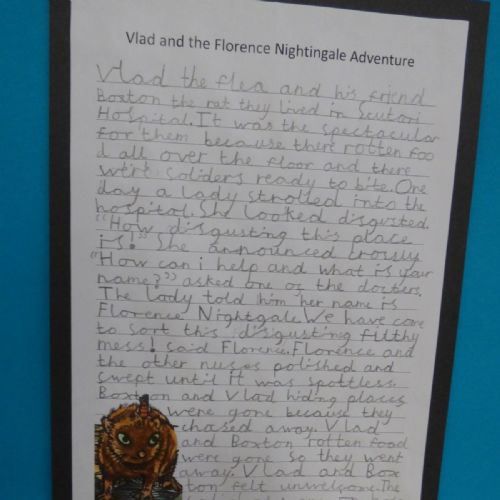 Vlad and the Florence Nightingale Adventure
Vlad the flea and his friend
Boxton the rat they lived in Scutari
Hospital. It was the spectacular
for them because there rotten foo
d all over the floor and there
were soliders ready to bite. One
day a lady strolled into the
hospital. She looked disgusted.
"How disgusting this place
is!" She announced crossly
"How can i help and what is your
name?" asked one of the doctors.
The lady told him her name is
Florence Nightgale. We have come
to sort this disgusting filthy
mess! said Florence. Florence and
the other nuses polished and
swept until it was spotless.
Boxton and Vlad hiding places
were gone because they
chased away. Vlad
and Boxton rotten food
were gone so they went
away. Vlad and Box
ton felt unwelcome. The